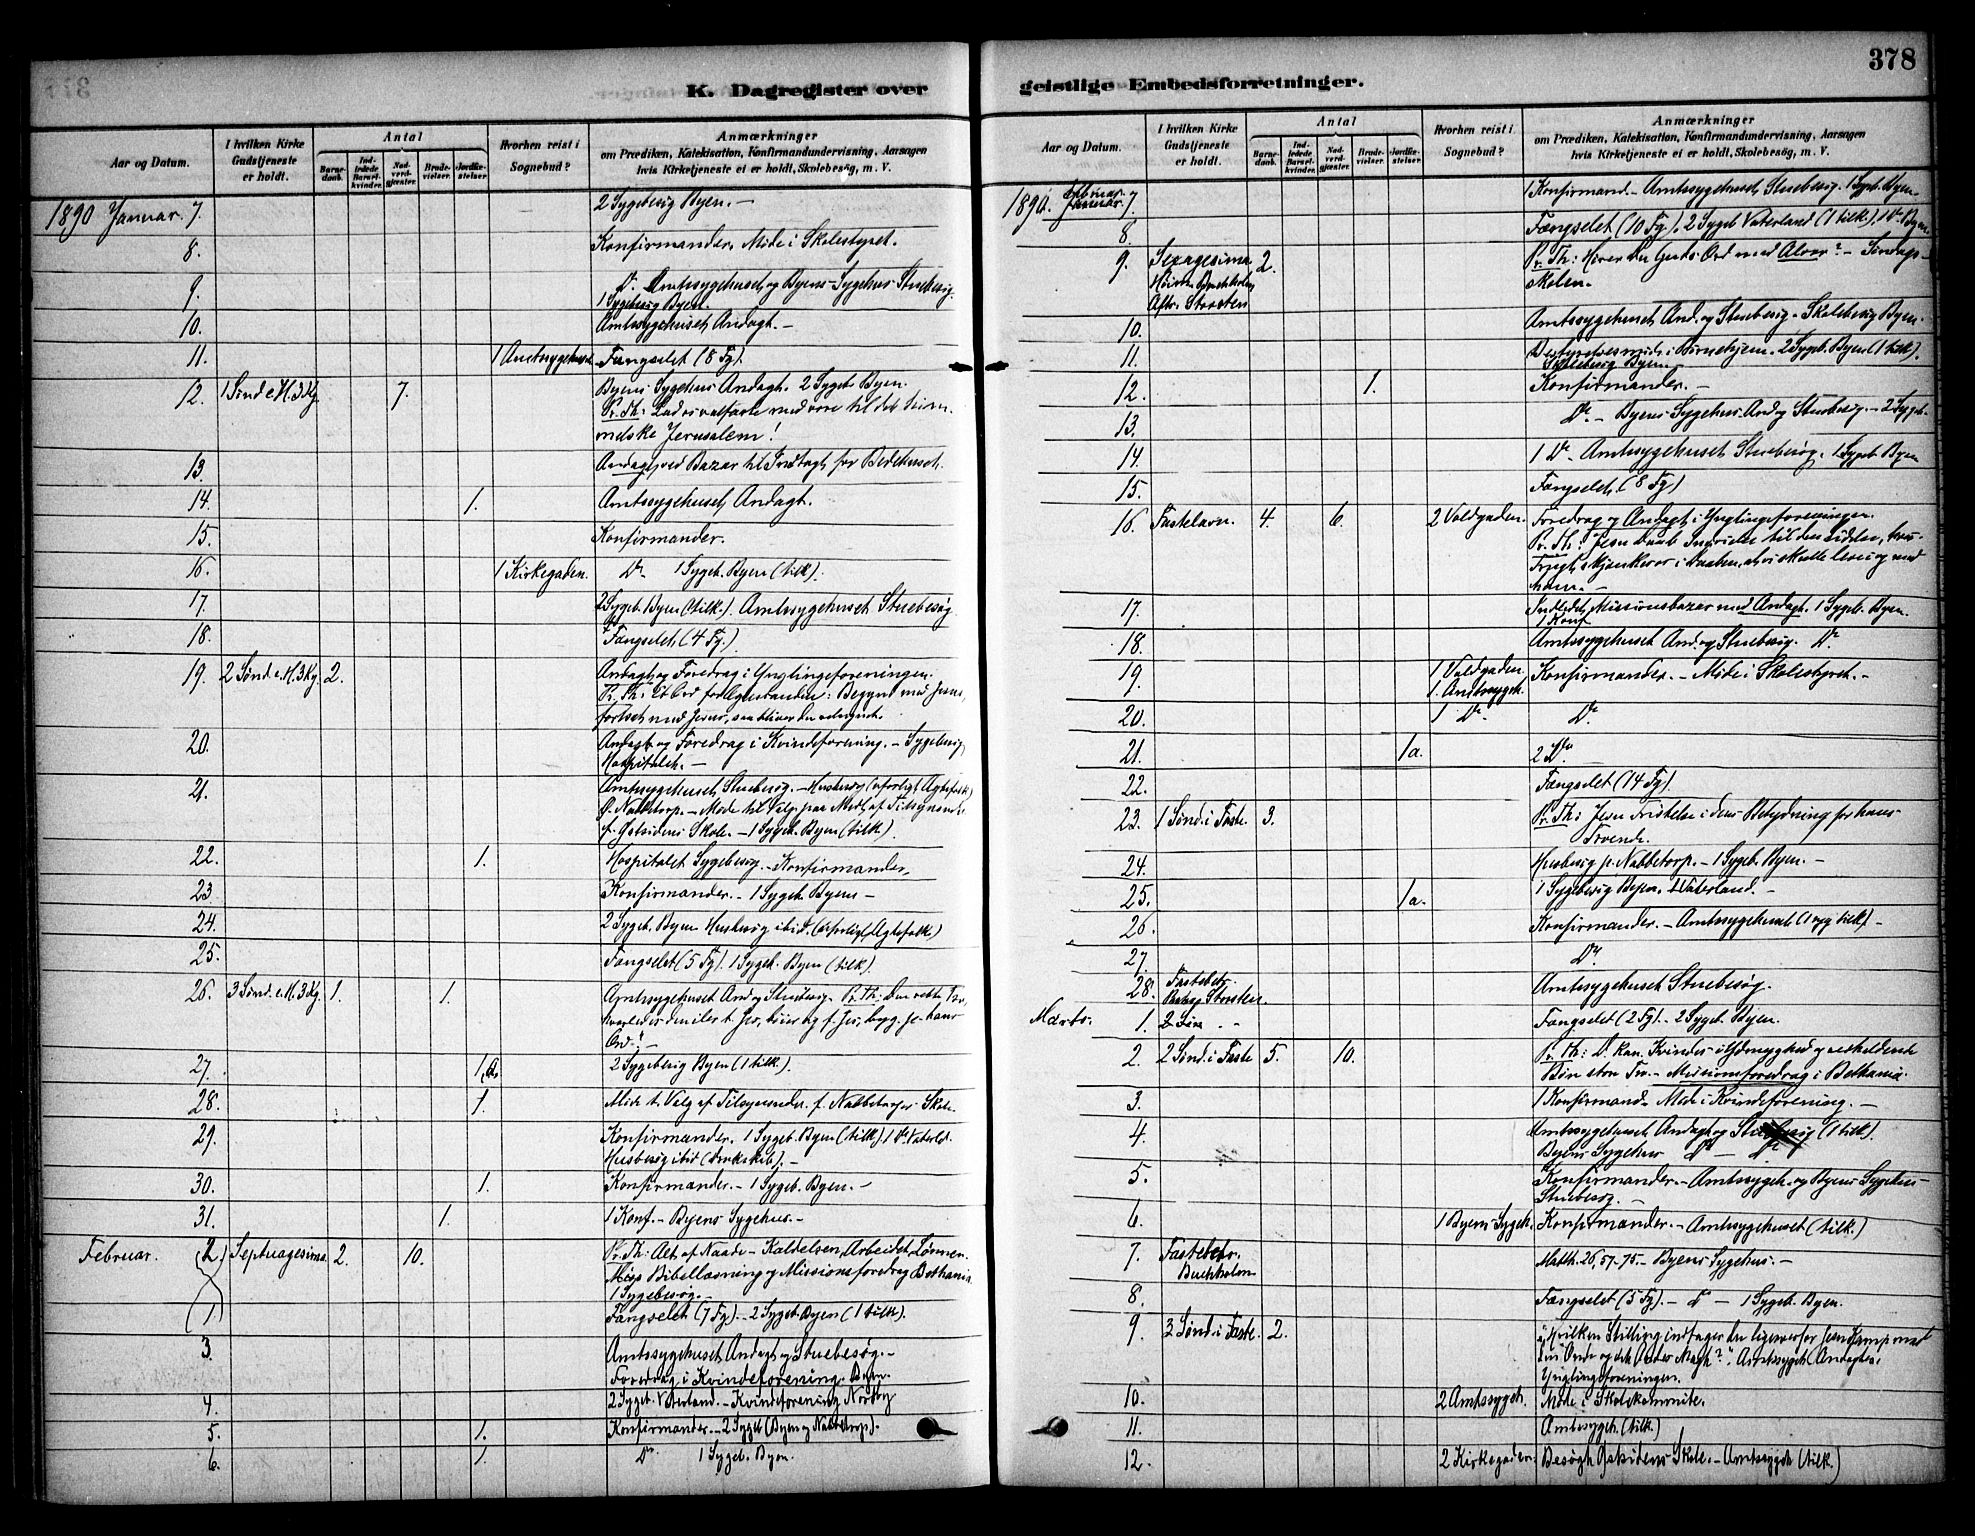 378
K. Dagregister over geistlige Embedsforretninger.
Aar og Datum.
I hvilken Kirke Gudstjeneste er holdt.
Antal
Barnedaab.
Indledede Barselkvinder.
Nadverdgjester.
Brudevielser.
Jordfæstelser.
Hvorhen reist i Sognebud?
Anmærkninger
om Prædiken, Katekisation, Konfirmandundervisning, Aarsagen
hvis Kirketjeneste ei er holdt, Skolebesøg, m. V.
1890 Januar 7. 2 Sygebesøg Byen. –
8. Konfirmander. Møde i Skolestyret.
9. Do. Amtssygehuset og Byens Sygehus Stuebesøg.
1 Sygebesøg Byen.
10. Amtssygehuset Andagt. –
11. 1 Amtssygehuset Fængselet (8 Fg).
12. 1 Sønd. e. H. 3 Kg. 7. Byens Sygehus Andagt. 2 Sygeb. Byen.
Pr. Th: Lad os valfarte med vore til det himmelske Jerusalem!
13. Andagt ved Bazar til Indtægt for Bedehuset.
14. 1. Amtssygehuset Andagt.
15. Konfirmander.
16. 1 Kirkegaden. Do 1 Sygeb. Byen (tilk).
17. 2 Sygeb. Byen (tilk). Amtssygehuset Stuebesøg
18. Fængselet (4 Fg).
19. 2 Sønd. e. H. 3 Kg. 2. Andagt og Foredrag i Ynglingeforeningen.
Pr. Th: Begynd med Jesus,
fortsæt med Jesus, saa bliver du
20. Andagt og Foredrag i Kvindeforening. – Sygebesøg
Hospitalet. –
21. Amtssygehuset Stuebesøg. – Husbesøg
Nabbetorp. – Møde til Valg paa Medl. af Tilsynsudv.
f. Østsidens Skole. – 1 Sygeb. Byen (tilk).
22. 1. Hospitalet Sygebesøg. – Konfirmander.
23. Konfirmander. – 1 Sygeb. Byen –
24. 2 Sygeb. Byen Husbesøg ibid.
25. Fængselet (5 Fg). 1 Sygeb. Byen (tilk).
26. 3 Sønd. e. H. 3 Kg. 1. 1. Amtssygehuset And. og Stuebesøg. Pr. Th: Den rette Tro,
Ord."
27. 1a. 2 Sygebesøg Byen (1 tilk.).
28. 1. Møde t. Valg af Tilsynsudv. f. Nabbetorps Skole.
29. Konfirmander. 1 Sygeb. Byen (tilk). 1 Do Vaterld.
Husbesøg ibid
30. 1. Konfirmander. – 1 Sygeb. Byen. –
31. 1. 1 Konf. – Byens Sygehus. –
Februar. (2.) Septuagesima 2. 10. Pr. Th: Alt af Naade – Kaldelsen, Arbeidet, Lønnen.
Bibellæsning og Missionsforedrag Bethania
1 Sygebesøg. –
1. Fængselet (7 Fg). – 2 Sygeb. Byen (1 tilk).
3. Amtssygehuset Andagt og Stuebesøg. –
Foredrag i Kvindeforening. Byen.
4. 2 Sygeb. Vaterland. – Kvindeforening Nordby
5. 1. Konfirmander. – 2 Sygeb (Byen og Nabbetorp).
6. 1. Do 1 Sygeb. Byen.
K. Dagregister over geistlige Embedsforretninger.
Aar og Datum.
I hvilken Kirke Gudstjeneste er holdt.
Antal
Barnedaab.
Indledede Barselkvinder.
Nadverdgjester.
Brudevielser.
Jordfæstelser.
Hvorhen reist i Sognebud?
Anmærkninger
om Prædiken, Katekisation, Konfirmandundervisning, Aarsagen
hvis Kirketjeneste ei er holdt, Skolebesøg, m. V.
1890. Februar 7. 1 Konfirmand. – Amtssygehuset Stuebesøg. 1 Sygeb. Byen.
8. Fængselet (10 Fg). 2 Sygeb. Vaterland (1 tilk). 1 Do Byen.
9. Sexagesima 2. Pr. Th: Hører du Guds Ord med Alvor? – Søndagsskolen.
Buchholm
Aft. Storsten
10. Amtssygehuset And. og Stuebesøg – Skolebesøg Byen.
11. Bestyrelsesmøde i Børnehjem. 2 Sygeb. Byen (1 tilk).
Skolebesøg Byen.
12. 1. Konfirmander. –
13. Do. – Byens Sygehus And. og Stuebesøg. – 2 Sygeb.
14. 1 Do – Amtssygehuset Stuebesøg. 1 Sygeb. Byen
15. Fængselet (8 Fg)
16. Fastelavn. 4. 6. 2 Voldgaden. Foredrag og Andagt i Ynglingeforeningen.
Pr. Th: Jesu Daab
ham. –
17. Indledet Missionsbazar med Andagt. 1 Sygeb. Byen.
1 Konf
18. Amtssygehuset And. og Stuebesøg. Do.
19. 1 Voldgaden. 1 Amtssygeh. Konfirmander. – Møde i Skolestyret. –
20. 1 Do. Do.
21. 1a. 2 Do
22. Fængselet (14 Fg).
23. 1 Sønd. i Faste. 3. Pr. Th: Jesu Fristelse i dens Betydning for hans
Troende.
24. Husbesøg p. Nabbetorp. – 1 Sygeb. Byen. –
25. 1a. 1 Sygebesøg Byen. 1 Vaterland. –
26. Konfirmander. – Amtssygehuset (1 syg tilk) –
27. Do.
28. Fastebtr. Storsten Amtssygehuset Stuebesøg.
Marts. 1. Fængselet (2 Fg). – 2 Sygeb. Byen.
2. 2 Sønd. i Faste 5. 10. Pr. Th: D. kan. Kvindes Ydmyghed og
Bøn stor Tro. – Missionsforedrag i Bethania.
3. 1 Konfirmand. Møde i Kvindeforening. –
4. Amtssygehuset Andagt og Stuebesøg (1 tilk).
Byens Sygehus Do – Do
5. Konfirmander. – Amtssygeh. og Byens Sygehus
Stuebesøg. –
6. 1 Byens Sygeh. Konfirmander. – Amtssygehuset (tilk.)
7. Fastebetr. Buchholm Matth. 26, 57–75. – Byens Sygehus. –
8. Fængselet (5 Fg). – Do – 1 Sygeb. Byen.
9. 3 Sønd. i Faste. 2. "Hvilken Stilling indtager du ligeoverfor Jesu Kamp mod
Magt?". Amtssygeh. Andagt.
Ynglingeforeningen.
10. 2 Amtssygeh. Møde i Skolekommite.
11. Amtssygeh. (tilk)
12. 2 Kirkegaden. Besøgt Østsidens Skole. – Amtssygeh. (tilk.)